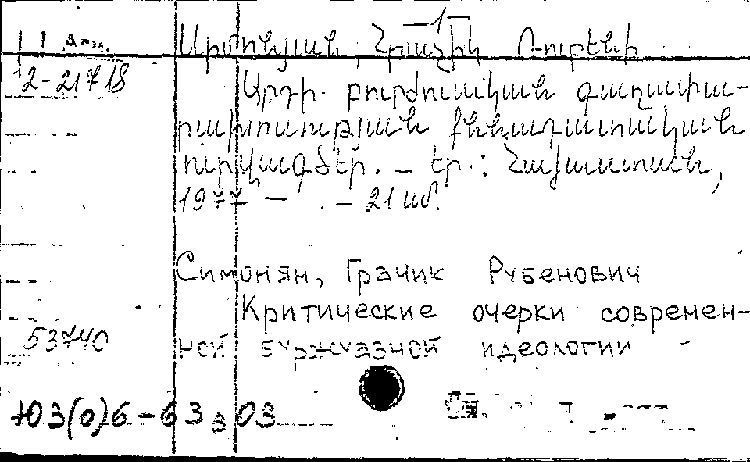 -1-
Սիմոնյան, Հրաչիկ Ռուբենի
2-21718
Արդի բուրժուական գաղափա-
րախոսության քննադատական
ուրվագծեր. – Եր.: Հայաստան,
1977 – . – 21 սմ.
Симонян, Грачик Рубенович
Критические очерки современ-
53740
ной буржуазной идеологии
Ю3(0)6-63 з 03